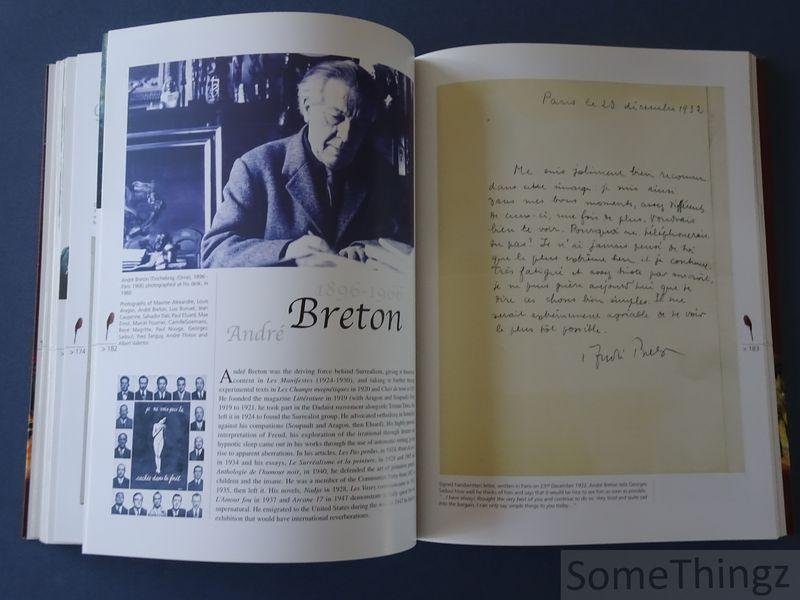 André Breton (Tinchebray, (Orne), 1896 -
Paris 1966) photographed at his desk, in
1960.
Photographs of Maxime Alexandre, Louis
Aragon, André Breton, Luis Bunuel, Jean
Caupenne, Salvador Dali, Paul Eluard, Max
Ernst, Marcel Fourrier, Camille Goemans,
René Magritte, Paul Nougé, Georges
Sadoul, Yves Tanguy, André Thirion and
Albert Valentin.
1896-1966
André Breton
> 174
> 182
André Breton was the driving force behind Surrealism, giving it
content in Les Manifestes (1924-1930), and taking it further through
experimental texts in Les Champs magnétiques in 1920 and Clair de terre in
He founded the magazine Littérature in 1919 (with Aragon and Soupault) and from
1919 to 1921, he took part in the Dadaist movement alongside Tristan Tzara, but
left it in 1924 to found the Surrealist group. He advocated orthodoxy in
against his companions (Soupault and Aragon, then Eluard). His highly
interpretation of Freud, his exploration of the irrational through dreams and
hypnotic sleep came out in his works through the use of automatic writing, giving
rise to apparent aberrations. In his articles, Les Pas perdus, in 1924, Point du jour
in 1934 and his essays, Le Surréalisme et la peinture, in 1928 and 1965 and
Anthologie de l'humour noir, in 1940, he defended the art of primitive people,
children and the insane. He was a member of the Communist Party from 1927 to
1935, then left it. His novels, Nadja in 1928, Les Vases communicants in 1932,
L'Amour fou in 1937 and Arcane 17 in 1947 demonstrate his
supernatural. He emigrated to the United States during the war and in 1947
exhibition that would have international reverberations.
je ne vois pas la
cachée dans la forêt
Paris le 23 décembre 1932
Me suis joliment bien reconnu
dans cette image. Je suis ainsi
dans mes bons moments, assez différents
de ceux-ci, une fois de plus. Voudrais
bien te voir. Pourquoi ne téléphonerais-
tu pas? Je n'ai jamais pensé de toi
que le plus extrême bien et je continue.
Très fatigué et assez triste par surcroît,
je ne puis guère aujourd'hui que te
dire ces choses bien simples. Il me
serait extrêmement agréable de te voir
le plus tôt possible.
André Breton
> 183
Signed handwritten letter, written in Paris on 23rd December 1932. André Breton tells Georges
Sadoul how well he thinks of him and says that it would be nice to see him as soon as possible:
"... I have always thought the very best of you and continue to do so. Very tired and quite sad
into the bargain, I can only say simple things to you today..."
SomeThingz